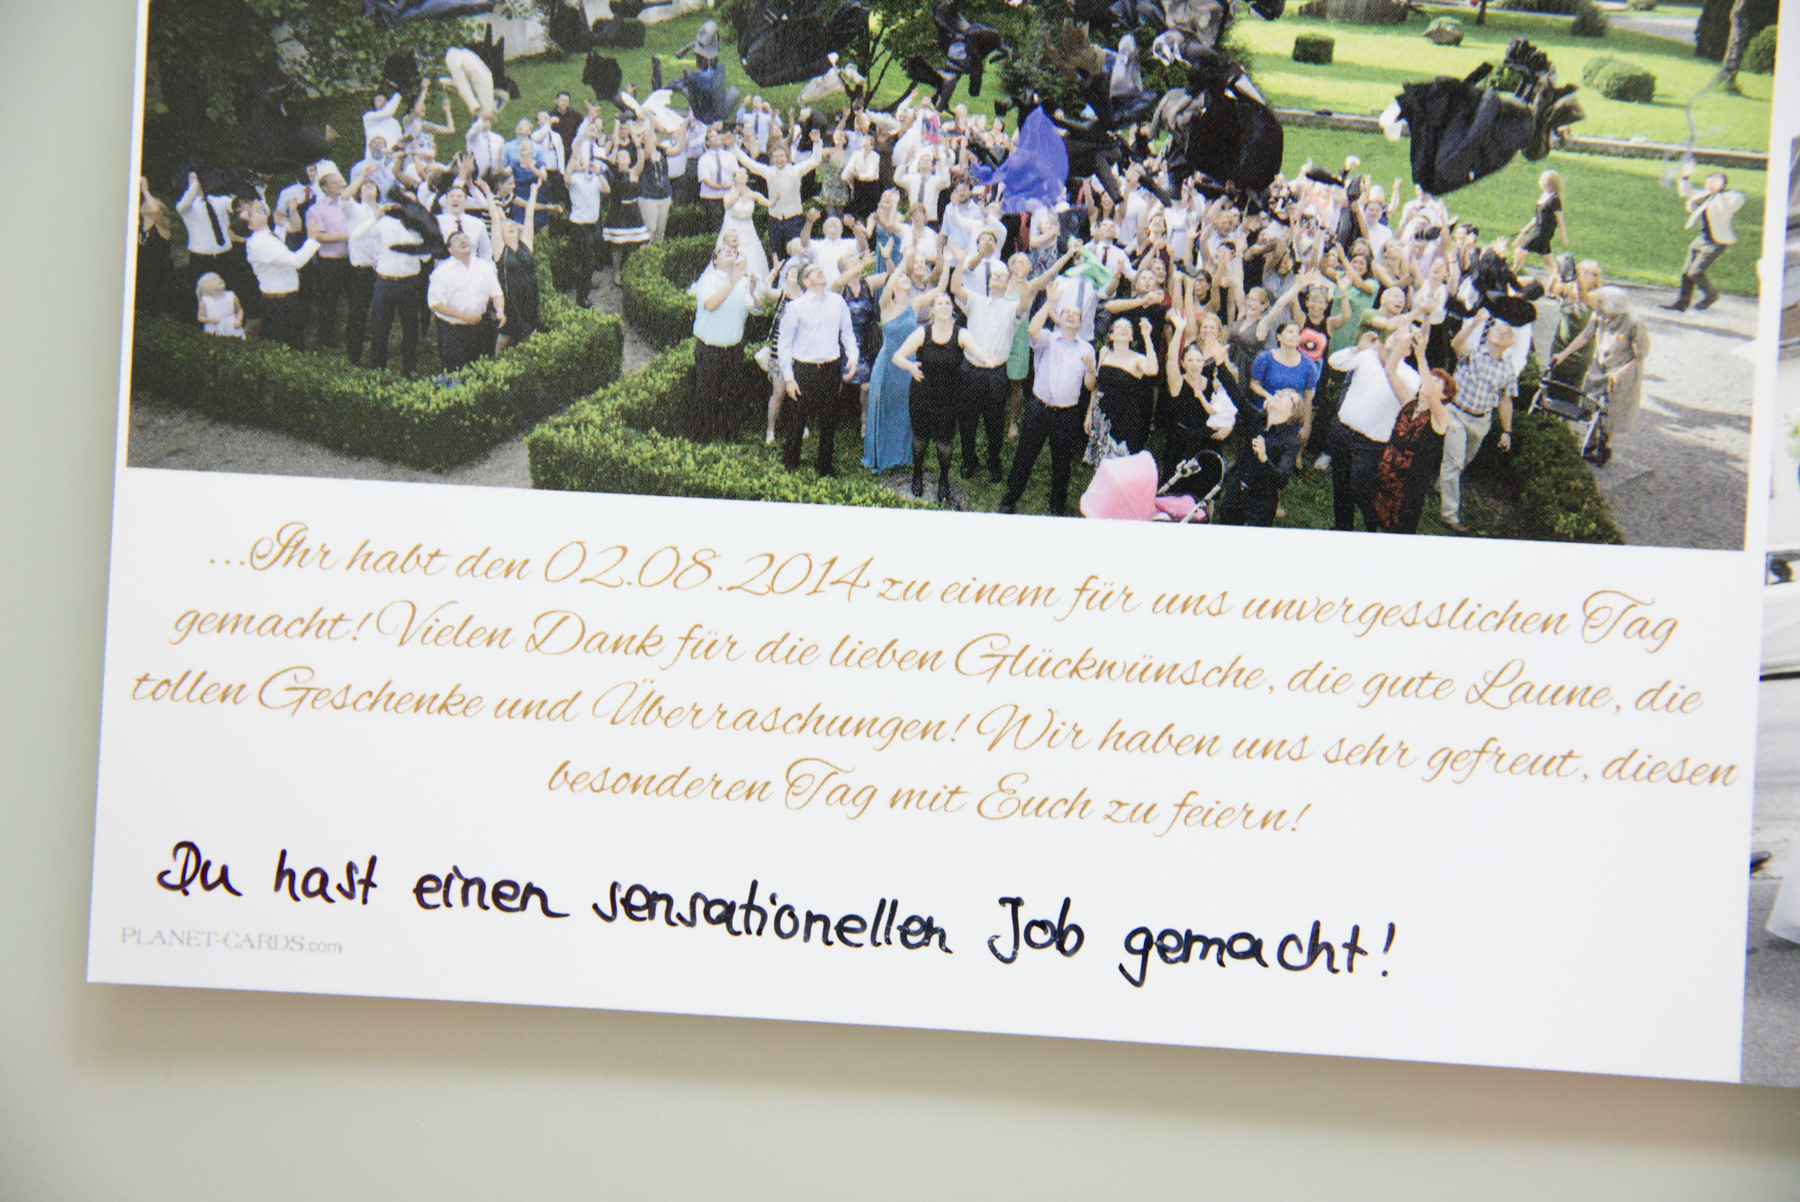 ...Ihr habt den 02.08.2014 zu einem für uns unvergesslichen Tag
gemacht! Vielen Dank für die lieben Glückwünsche, die gute Laune, die
tollen Geschenke und Überraschungen! Wir haben uns sehr gefreut, diesen
besonderen Tag mit Euch zu feiern!
Du hast einen sensationellen Job gemacht!
PLANET-CARDS.com